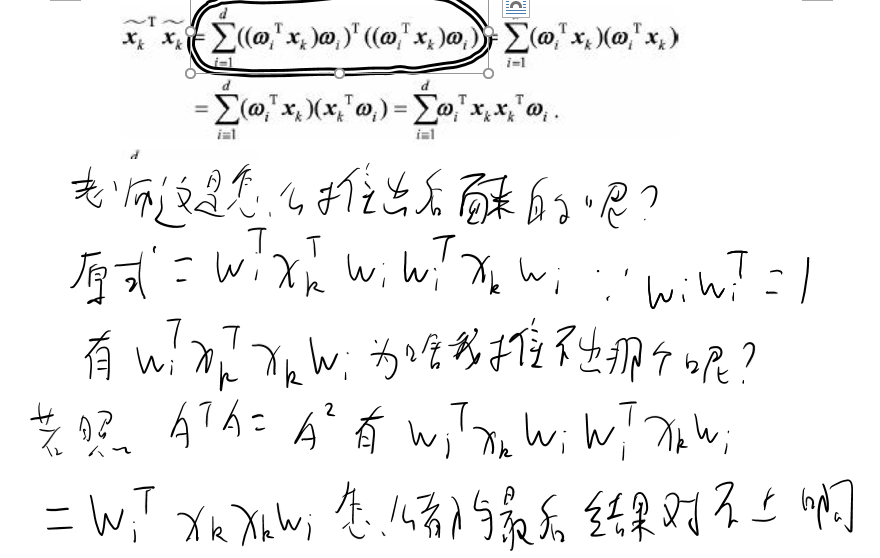 x̃ₖᵀ x̃ₖ = Σᵢ₌₁ᵈ ((ωᵢᵀxₖ)ωᵢ)ᵀ((ωᵢᵀxₖ)ωᵢ) = Σᵢ₌₁ᵈ (ωᵢᵀxₖ)(ωᵢᵀxₖ)
= Σᵢ₌₁ᵈ (ωᵢᵀxₖ)(xₖᵀωᵢ) = Σᵢ₌₁ᵈ ωᵢᵀxₖxₖᵀωᵢ .
d
老师这是怎么推出后面来的呢?
原式 = wᵢᵀ xₖᵀ wᵢ wᵢᵀ xₖ wᵢ ∵ wᵢwᵢᵀ = 1
有 wᵢᵀ xₖᵀ xₖ wᵢ 为啥我推不出那个呢?
若照 AᵀA = A² 有 wᵢᵀ xₖ wᵢ wᵢᵀ xₖ wᵢ
= wᵢᵀ xₖ xₖ wᵢ 怎么看都与最后结果对不上啊